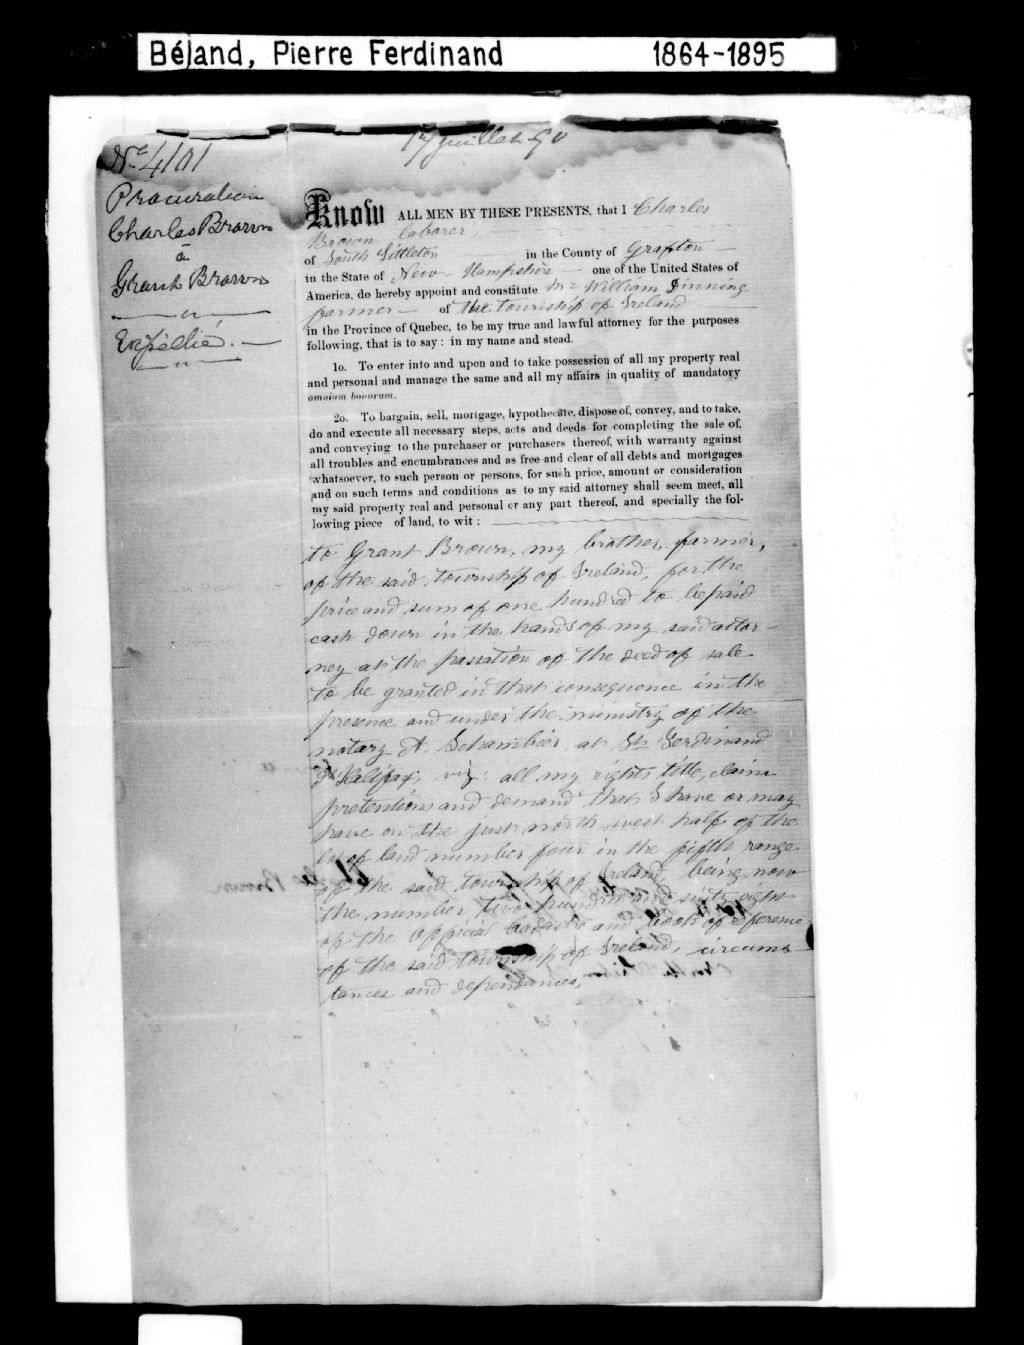 Béland, Pierre Ferdinand 1864-1895
17 juillet 90
No 4101
Procuration
Charles Brown
à
Grant Brown
Expédiée.
Know ALL MEN BY THESE PRESENTS, that I Charles
Brown, laborer,
of South Littleton in the County of Grafton
in the State of New-Hampshire one of the United States of
America, do hereby appoint and constitute Mr William Dinning
farmer of the township of Ireland
in the Province of Quebec, to be my true and lawful attorney for the purposes
following, that is to say : in my name and stead.
1o. To enter into and upon and to take possession of all my property real
and personal and manage the same and all my affairs in quality of mandatory
omnium bonorum.
2o. To bargain, sell, mortgage, hypothecate, dispose of, convey, and to take,
do and execute all necessary steps, acts and deeds for completing the sale of,
and conveying to the purchaser or purchasers thereof, with warranty against
all troubles and encumbrances and as free and clear of all debts and mortgages
whatsoever, to such person or persons, for such price, amount or consideration
and on such terms and conditions as to my said attorney shall seem meet, all
my said property real and personal or any part thereof, and specially the fol-
lowing piece of land, to wit :
to Grant Brown, my brother, farmer,
of the said township of Ireland, for the
price and sum of one hundred to be paid
cash down in the hands of my said attor-
ney at the passation of the deed of sale
to be granted in that consequence in the
presence and under the ministry of the
notary A. Schambier, at St Ferdinand
d'Halifax, viz: all my rights, title, claim
pretentions and demand that I have or may
have on the just north west half of the
lot of land number four in the fifth range
of the said township of Ireland, being now
the number two hundred and sixty eight
of the official cadastre and book of reference
of the said township of Ireland, circums-
tances and dependances,